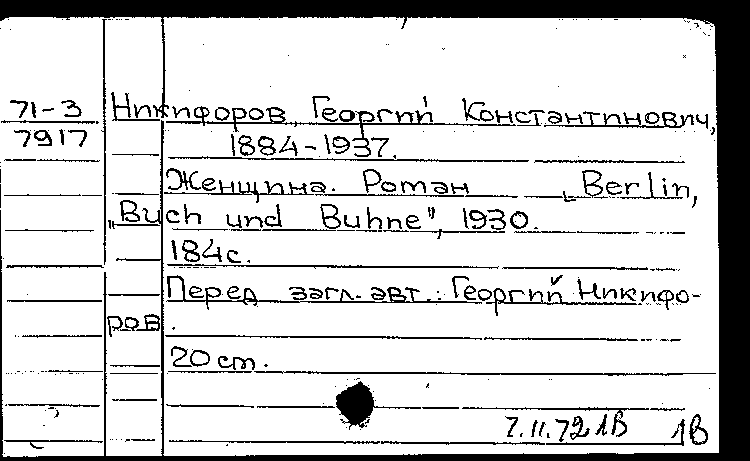 71-3
7917
Никифоров, Георгий Константинович,
1884-1937.
Женщина. Роман Berlin,
„Buch und Buhne", 1930.
184с.
Перед загл. авт.: Георгий Никифо-
ров.
20 cm.
7.11.72 1В 1В